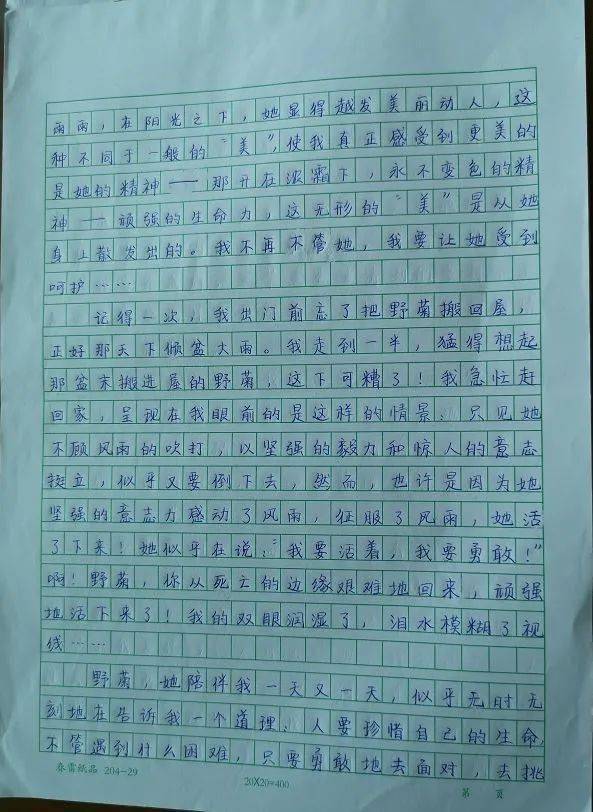 雨雨，在阳光之下，她显得越发美丽动人，这
种不同于一般的“美”，使我真正感受到更美的
是她的精神——那开在浓霜下，永不变色的精
神——顽强的生命力，这无形的“美”是从她
身上散发出的。我不再不管她，我要让她受到
呵护……
记得一次，我出门前忘了把野菊搬回屋，
正好那天下倾盆大雨。我走到一半，猛得想起
那盆未搬进屋的野菊，这下可糟了！我急忙赶
回家，呈现在我眼前的是这样的情景：只见她
不顾风雨的吹打，以坚强的毅力和惊人的意志
挺立，似乎又要倒下去，然而，也许是因为她
坚强的意志力感动了风雨，征服了风雨，她活
了下来！她似乎在说：“我要活着，我要勇敢！”
啊！野菊，你从死亡的边缘艰难地回来，顽强
地活下来了！我的双眼润湿了，泪水模糊了视
线……
野菊，她陪伴我一天又一天，似乎无时无
刻地在告诉我一个道理：人要珍惜自己的生命，
不管遇到什么困难，只要勇敢地去面对，去挑
春雷纸品 204-29
20X20=400
第 页